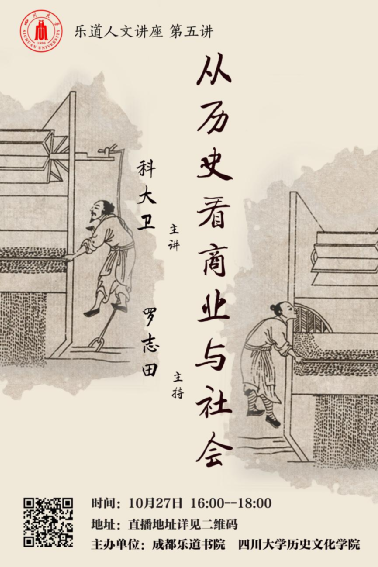 乐道人文讲座 第五讲
从历史看商业与社会
科大卫 主讲
罗志田 主持
时间：10月27日 16:00--18:00
地址：直播地址详见二维码
主办单位：成都乐道书院 四川大学历史文化学院